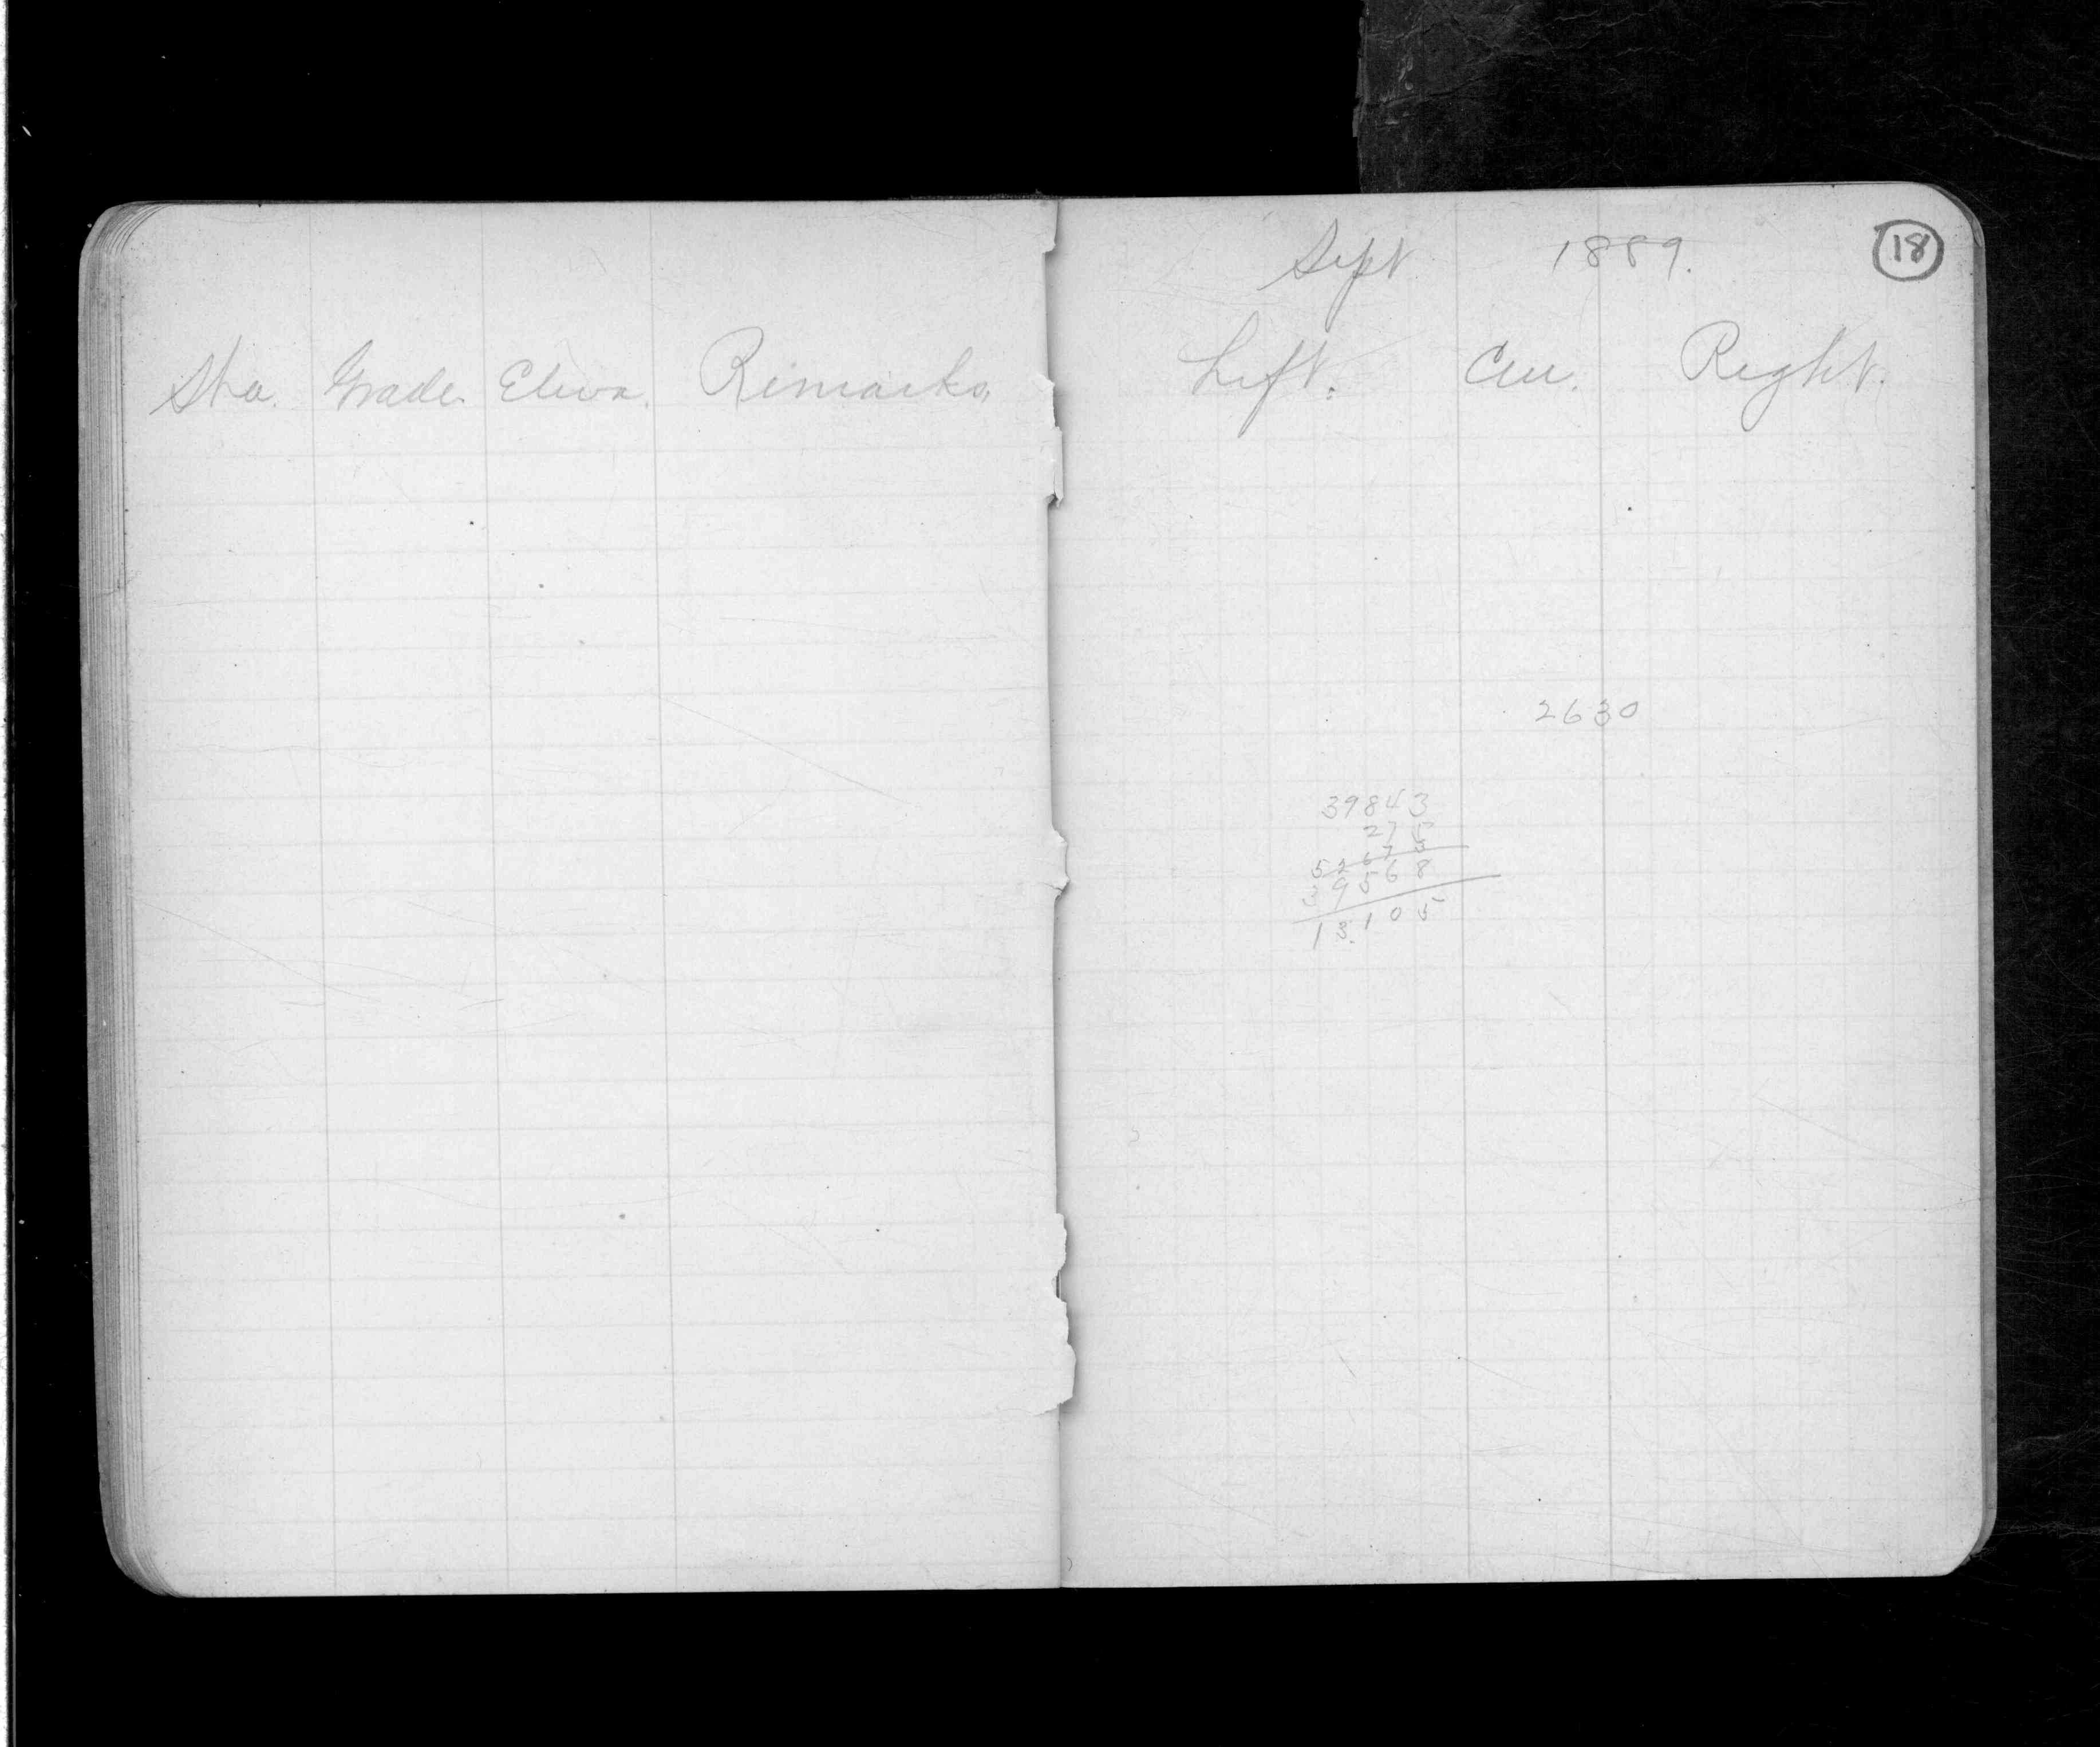 Sta. Grade. Eleva. Remarks.
Sept 1889. 18
Left. Cen. Right.
2630
39843
275
52673
39568
13.105